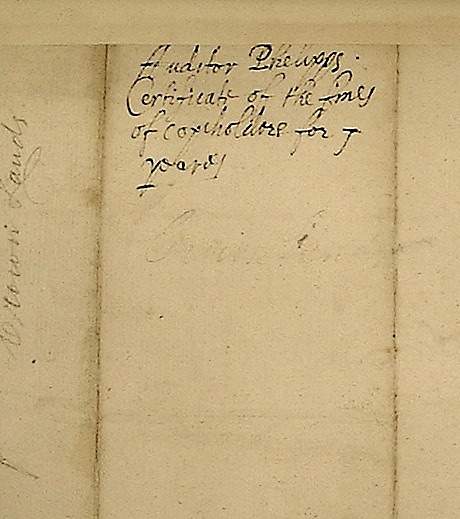 Auditor Phelipps.
Certificate of the fines
of copieholders for 7
yeares
Crown Lands